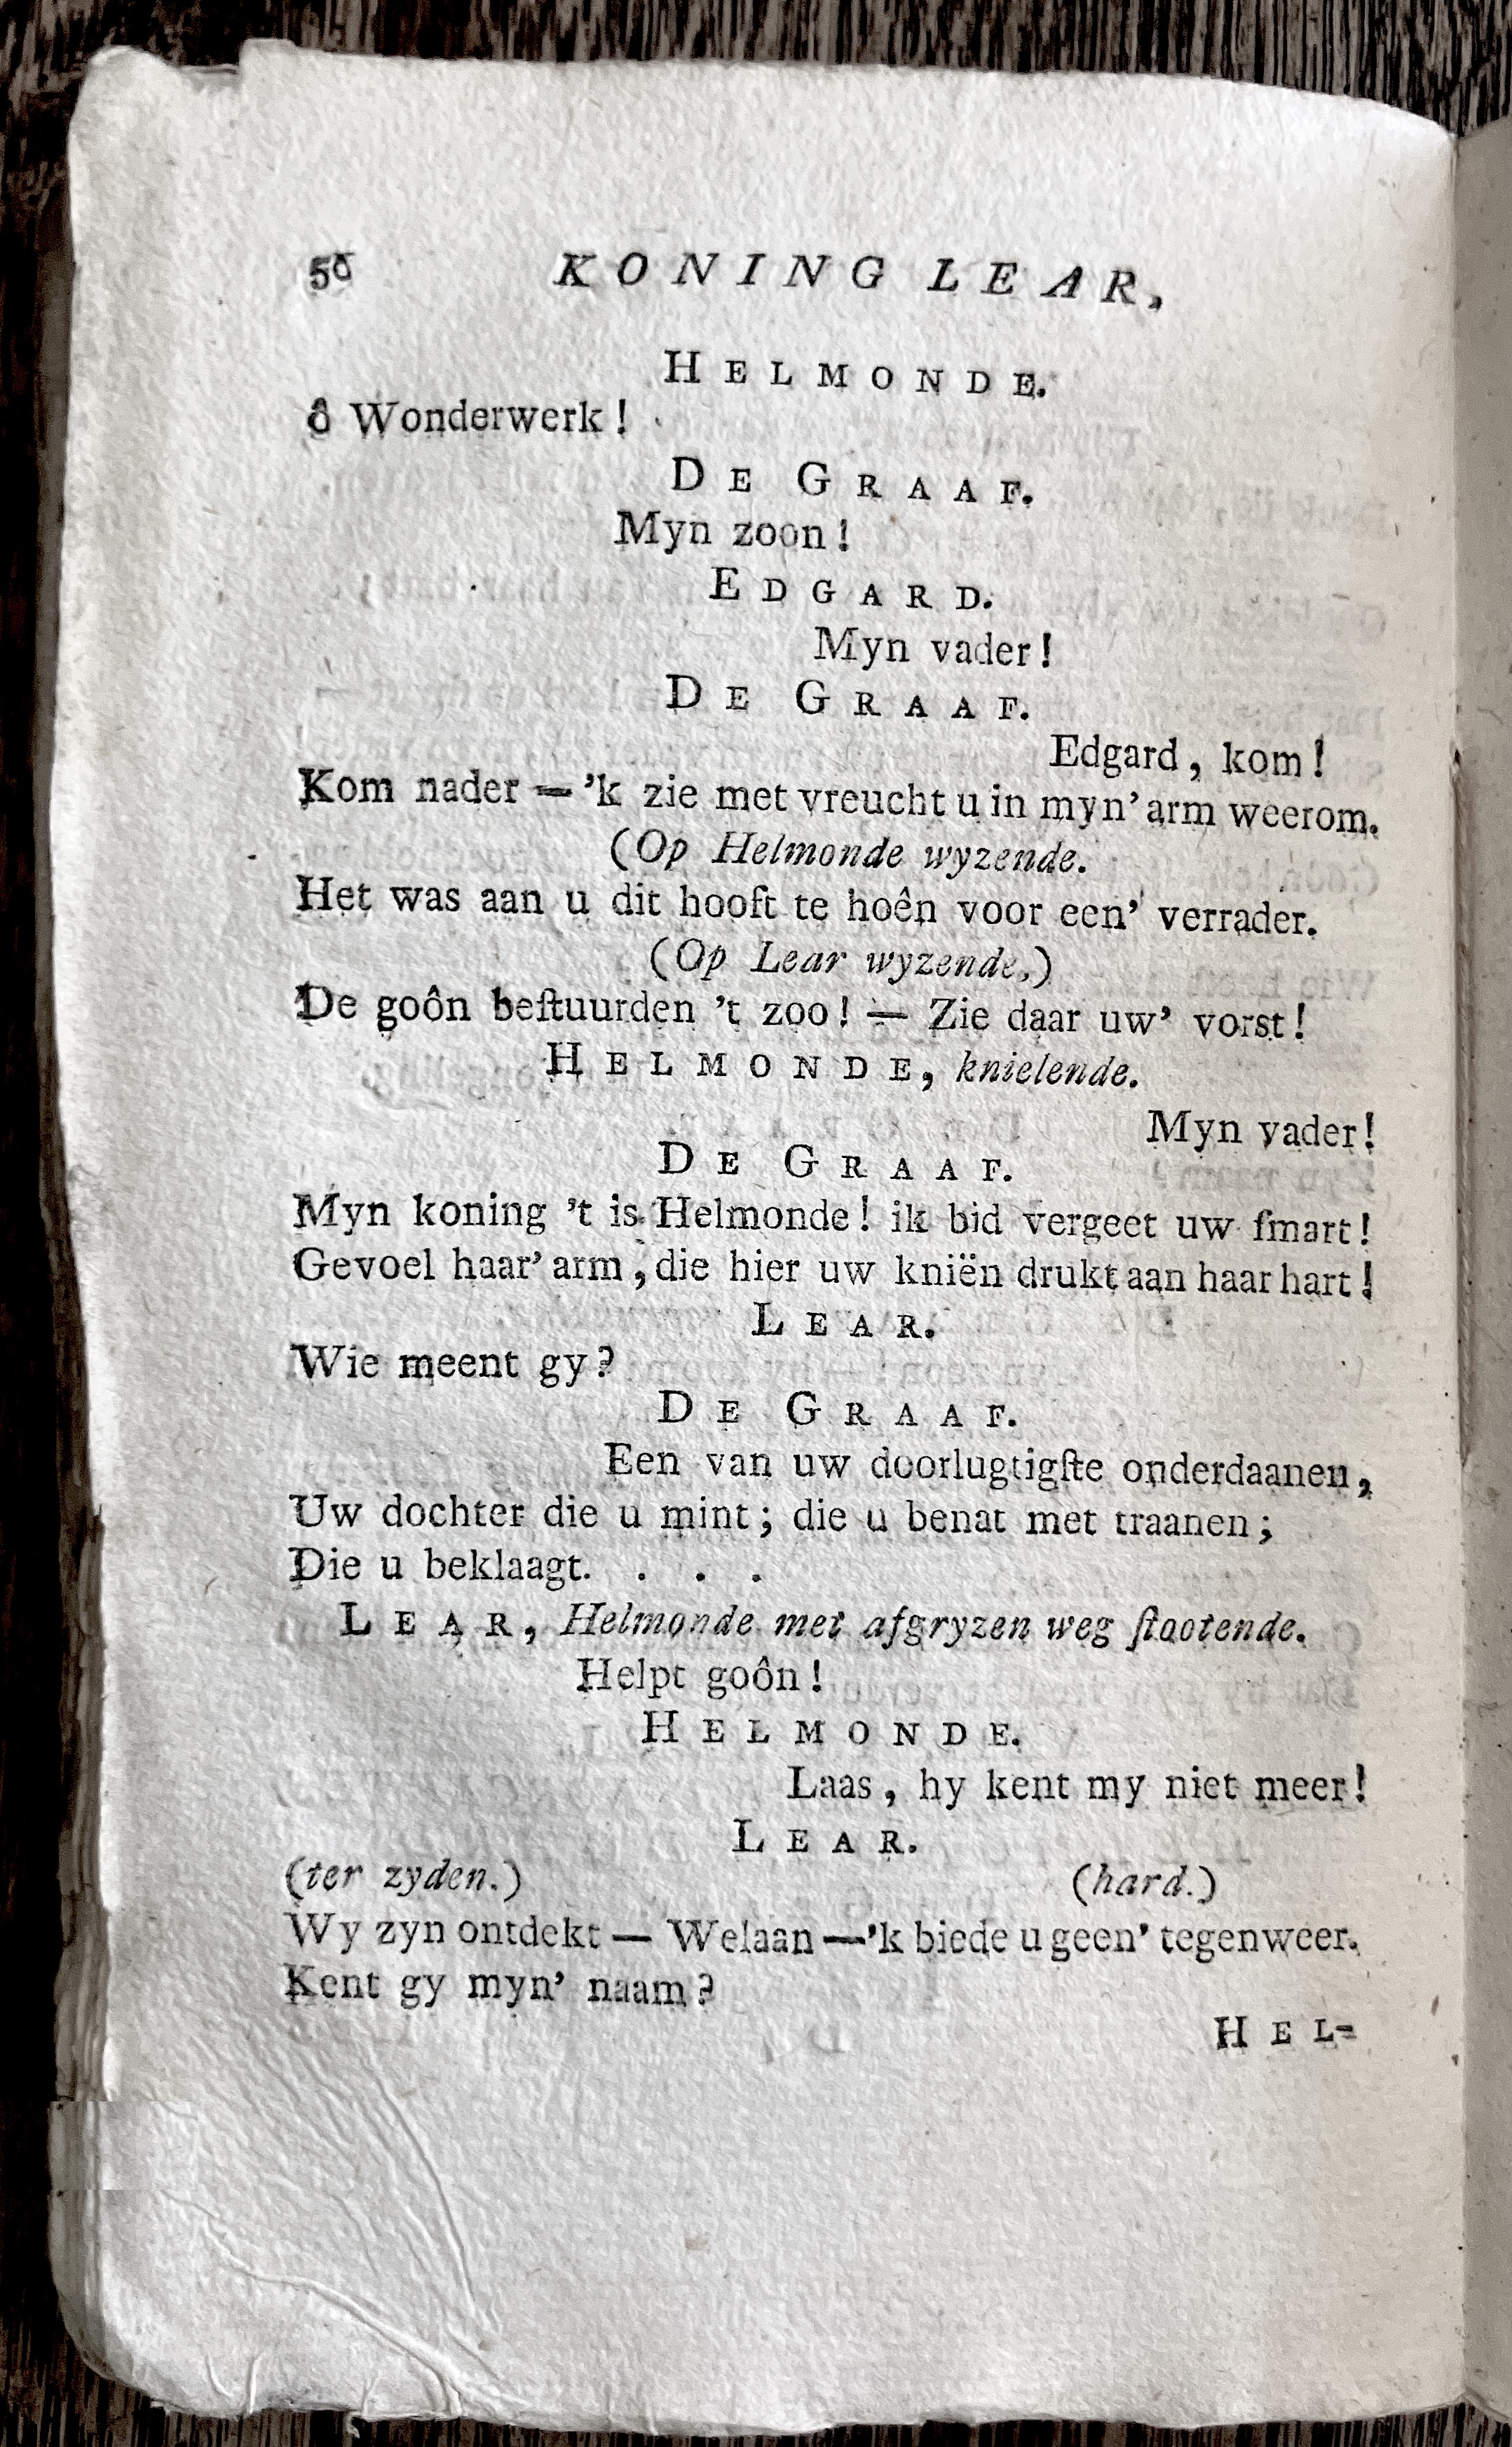 50 KONING LEAR,
HELMONDE.
ô Wonderwerk!
DE GRAAF.
Myn zoon!
EDGARD.
Myn vader!
DE GRAAF.
Edgard, kom!
Kom nader — 'k zie met vreucht u in myn' arm weerom.
(Op Helmonde wyzende.
Het was aan u dit hooft te hoên voor een' verrader.
(Op Lear wyzende.)
De goôn beſtuurden 't zoo! — Zie daar uw' vorst!
HELMONDE, knielende.
Myn vader!
DE GRAAF.
Myn koning 't is Helmonde! ik bid vergeet uw ſmart!
Gevoel haar' arm, die hier uw kniën drukt aan haar hart!
LEAR.
Wie meent gy?
DE GRAAF.
Een van uw doorlugtigſte onderdaanen,
Uw dochter die u mint; die u benat met traanen;
Die u beklaagt. . . .
LEAR, Helmonde met afgryzen weg ſtootende.
Helpt goôn!
HELMONDE.
Laas, hy kent my niet meer!
LEAR.
(ter zyden.) (hard.)
Wy zyn ontdekt — Welaan —'k biede u geen' tegenweer.
Kent gy myn' naam?
HEL-